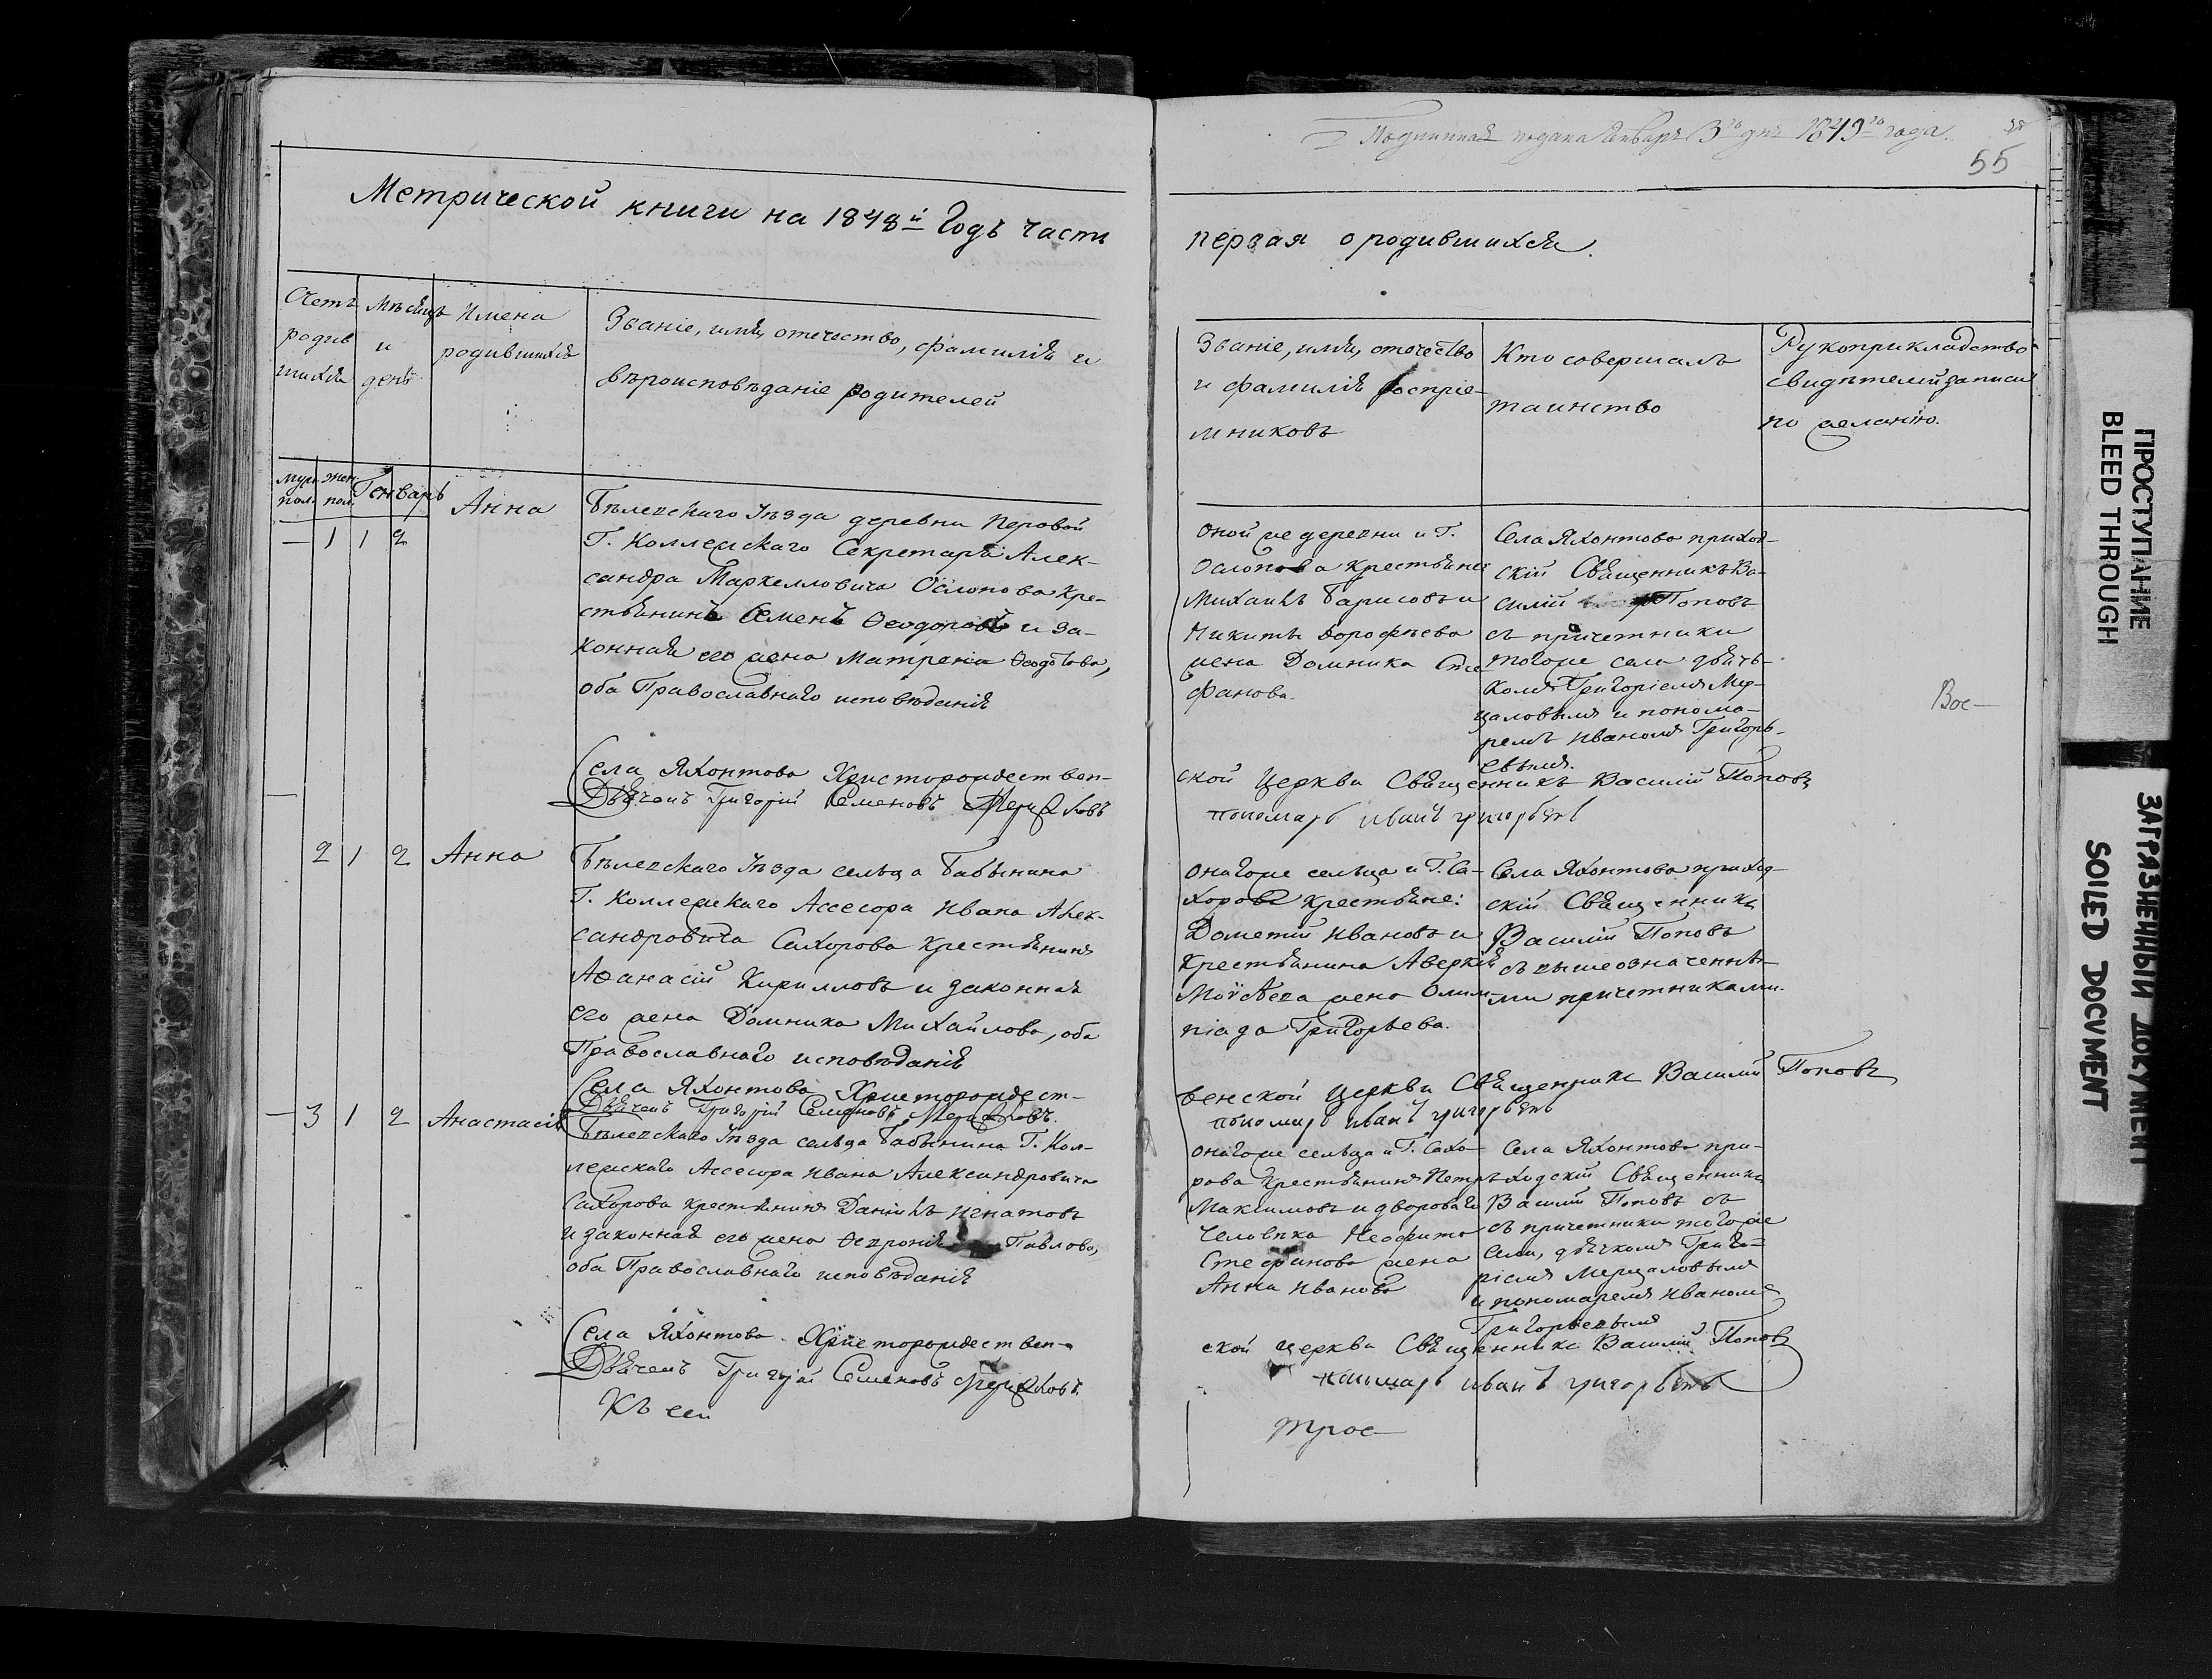 Подлинная подана Января 3го дня 1849го года.
55
Метрической книги на 1848й Годъ части
первая о родившихся.
Счетъ родившихся
Мѣсяцъ и день
Имена родившихся
Званіе, имя, отечество, фамилія и
вѣроисповѣданіе родителей
Званіе, имя, отечество
и фамилія воспріе-
мниковъ
Кто совершалъ
таинство
Рукоприкладство
свидѣтелей записи
по желанію.
муж. пол.
жен. пол.
Генварь
— 1 1 2
Анна
Бѣлевскаго Уѣзда деревни Перовой
Г. Коллежскаго Секретаря Алек-
сандра Маркелловича Ослопова кре-
стьянинъ Семенъ Ѳеодоровъ и за-
конная его жена Матрена Ѳеодотова,
оба Православнаго исповѣданія
оной же деревни и Г.
Ослопова крестьяне
Михаилъ Барисовъ и
Никиты Дорофѣева
жена Домника Сте-
фанова.
Села Яхонтова приход-
скій Священникъ Ва-
силій Поповъ
съ причетники
тогоже села дьячь-
комъ Григоріемъ Мер-
цаловымъ и понома-
ремъ Иваномъ Григорь-
евымъ.
Вос-
Села Яхонтова Христорождествен-
ской Церкви Священникъ Василій Поповъ
Дьячекъ Григорій Семеновъ Мерцаловъ
пономарь иванъ григорьевъ
2 1 2
Анна
Бѣлевскаго Уѣзда сельца Бабынина
Г. Коллежскаго Ассесора Ивана Алек-
сандровича Сахорова крестьянинъ
Аѳанасій Кирилловъ и законная
его жена Домника Михайлова, оба
Православнаго исповѣданія
онагоже сельца и Г. Са-
хорова крестьяне:
Дометій Ивановъ и
крестьянина Аверкія
Моѵсеева жена Олим-
піада Григорьева.
Села Яхонтова приход-
скій Священникъ
Василій Поповъ
съ вышеозначенны-
ми причетниками.
Села Яхонтова Христорождест-
венской Церкви Священникъ Василій Поповъ
Дьячекъ Григорій Семеновъ Мерцаловъ.
пономарь иванъ григорьевъ
— 3 1 2
Анастасія
Бѣлевскаго Уѣзда сельца Бабынина Г. Кол-
лежскаго Ассесора Ивана Александровича
Сахорова крестьянинъ Даніилъ Игнатовъ
и законная его жена Ѳевронія Павлова,
оба Православнаго исповѣданія
онагоже сельца и Г. Сахо-
рова крестьянинъ Петръ
Максимовъ и дворовага
человѣка Неофита
Стефанова жена
Анна Иванова
Села Яхонтова при-
ходскій Священникъ
Василій Поповъ съ
съ причетники тогоже
села, дьячкомъ Григо-
ріемъ Мерцаловымъ
и пономаремъ Иваномъ
Григорьевымъ
Села Яхонтова Христорождествен-
ской церкви Священникъ Василій Поповъ
Дьячекъ Григорій Семеновъ Мерцаловъ.
пономарь иванъ григорьевъ
Къ сей
трое-
ПРОСТУПАНИЕ
BLEED THROUGH
ЗАГРЯЗНЕННЫЙ ДОКУМЕНТ
SOILED DOCUMENT